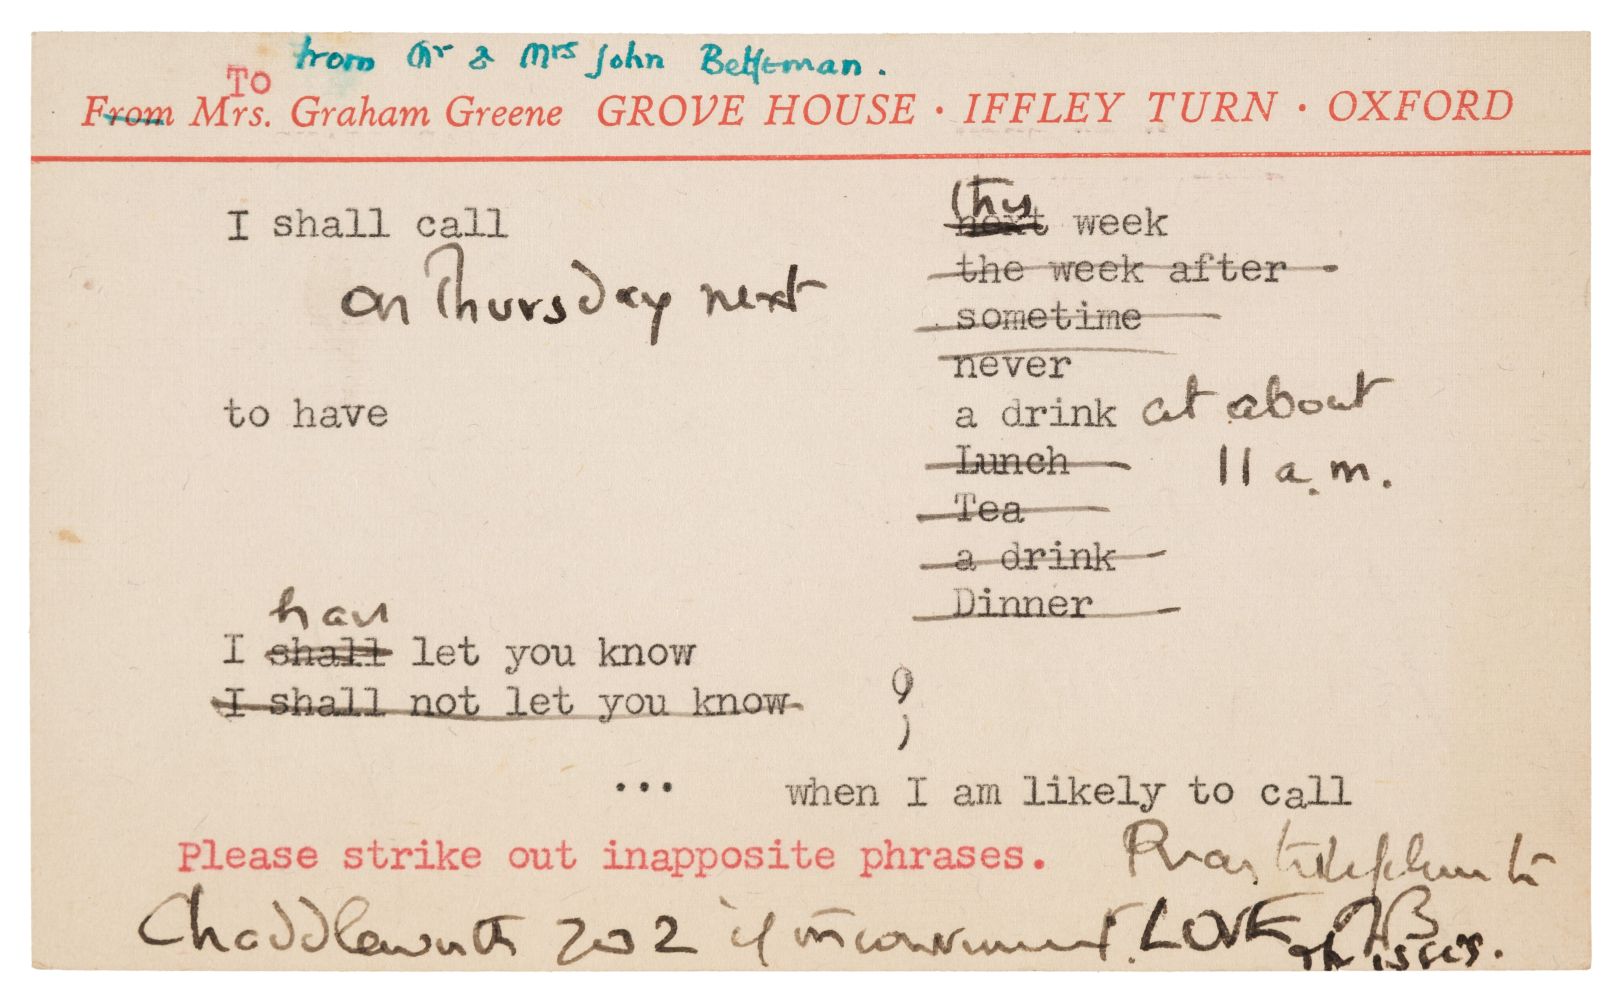 from Mr & Mrs John Betjeman.
TO
From Mrs. Graham Greene GROVE HOUSE · IFFLEY TURN · OXFORD
this
I shall call next week
on Thursday next
the week after
sometime
never
to have a drink at about
Lunch 11 a.m.
Tea
a drink
Dinner
have
I shall let you know
I shall not let you know
... when I am likely to call
Please strike out inapposite phrases. Please telephone to
Chaddleworth 202 if inconvenient. LOVE JB